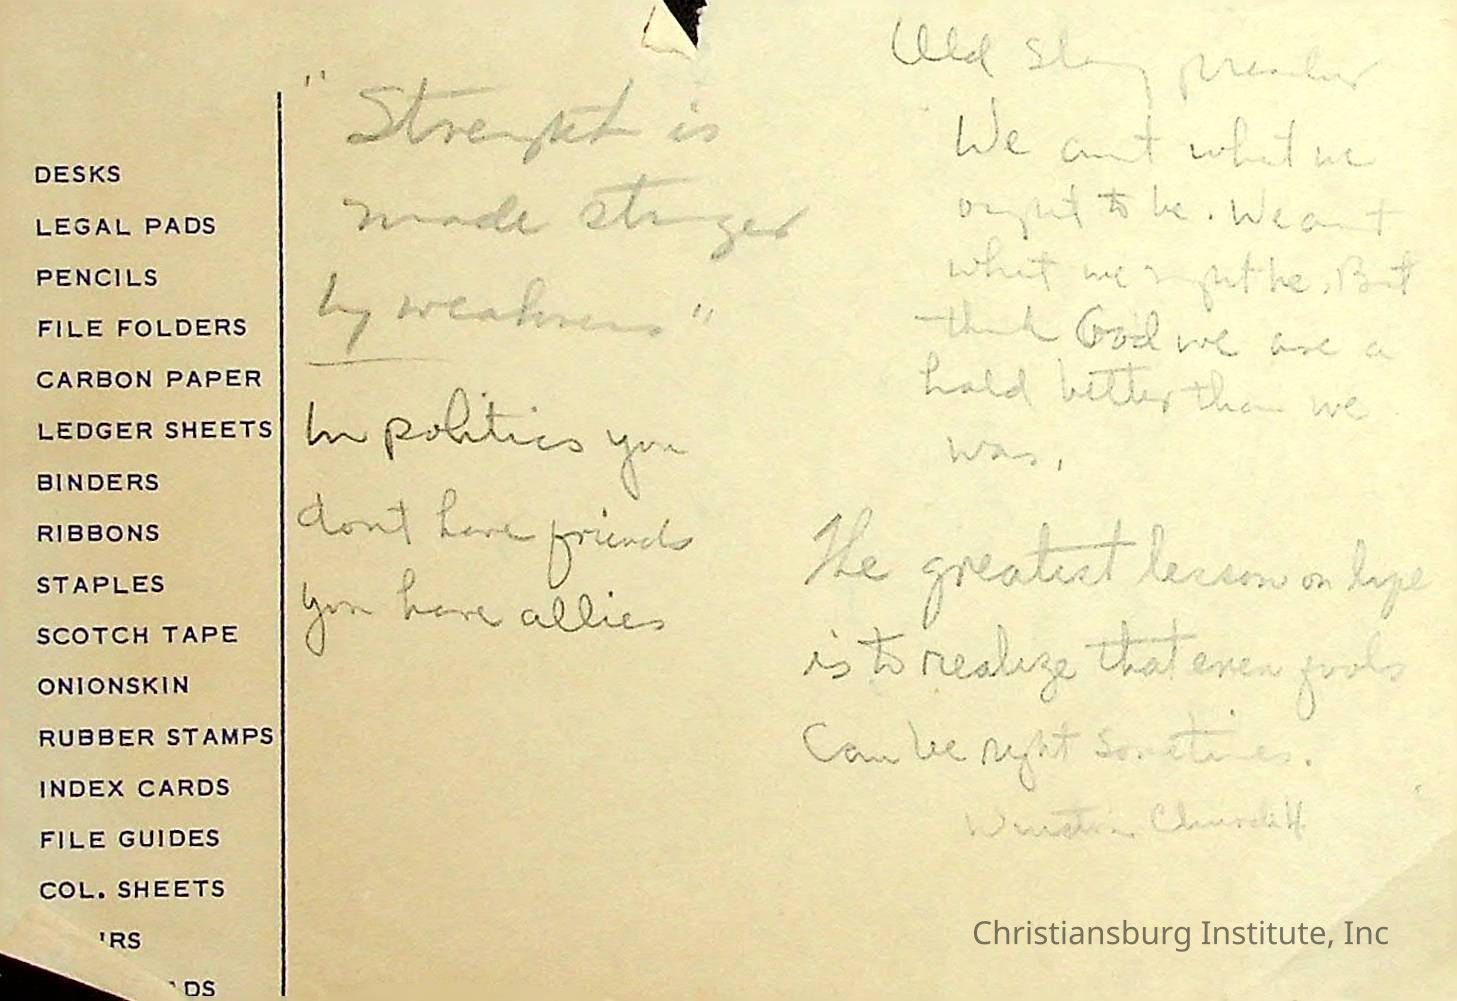 DESKS
LEGAL PADS
PENCILS
FILE FOLDERS
CARBON PAPER
LEDGER SHEETS
BINDERS
RIBBONS
STAPLES
SCOTCH TAPE
ONIONSKIN
RUBBER STAMPS
INDEX CARDS
FILE GUIDES
COL. SHEETS
IRS
ADS
"Strenght is
made stronger
by weakness"
In politics you
dont have friends
you have allies
Old preacher
We aint what we
ought to be. We aint
what we might be. But
thank God we are a
hald better than we
was.
The greatest lesson on life
is to realize that even fools
Can be right sometimes.
Winston Churchill
Christiansburg Institute, Inc